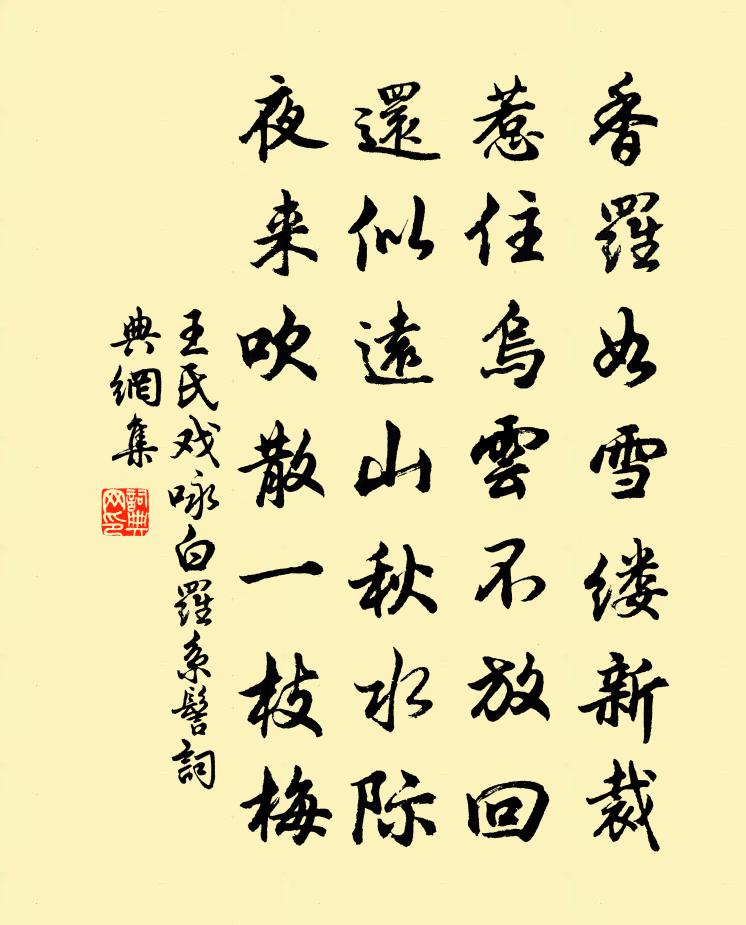 香羅如雪缕新裁
惹住烏雲不放回
還似遠山秋水际
夜来吹散一枝梅
王氏戏咏白羅系髻詞
典網集
詞典
网印